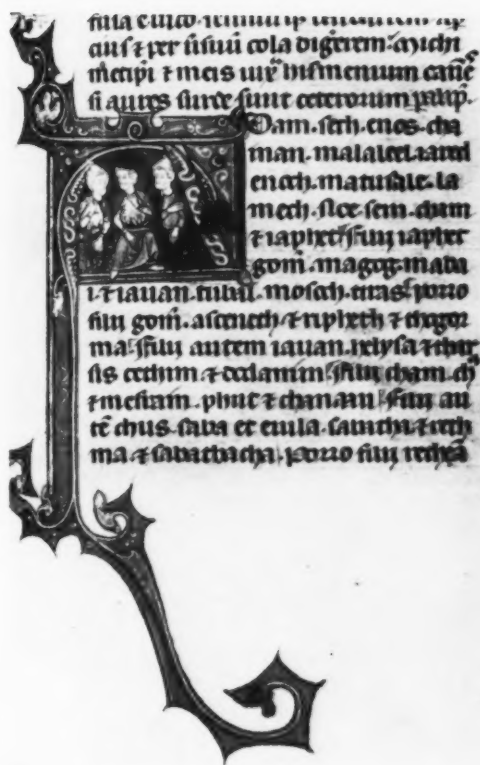 cius ⁊ per
cola digerem. michi
⁊ meis
si aures surde sunt ceterorum.
dam. seth. enos. cha
man. malaleel. iared
enoch. matusale. la
mech. noe. sem. cham
⁊ iapheth. filii iapheth
gom̃. magog. mada
i. ⁊ iauan. tubal. mosoch. tiras. porro
filii gom̃. ascenech ⁊ ripheth ⁊ thogor
ma. filii autem iauan. helysa ⁊ thar
sis cethim ⁊ dodanim. filii cham. chꝰ
⁊ mesraim. phut ⁊ chanaan. filii au
tē chus. saba et euila. sabatha ⁊ regh
ma ⁊ sabathacha. porro filii